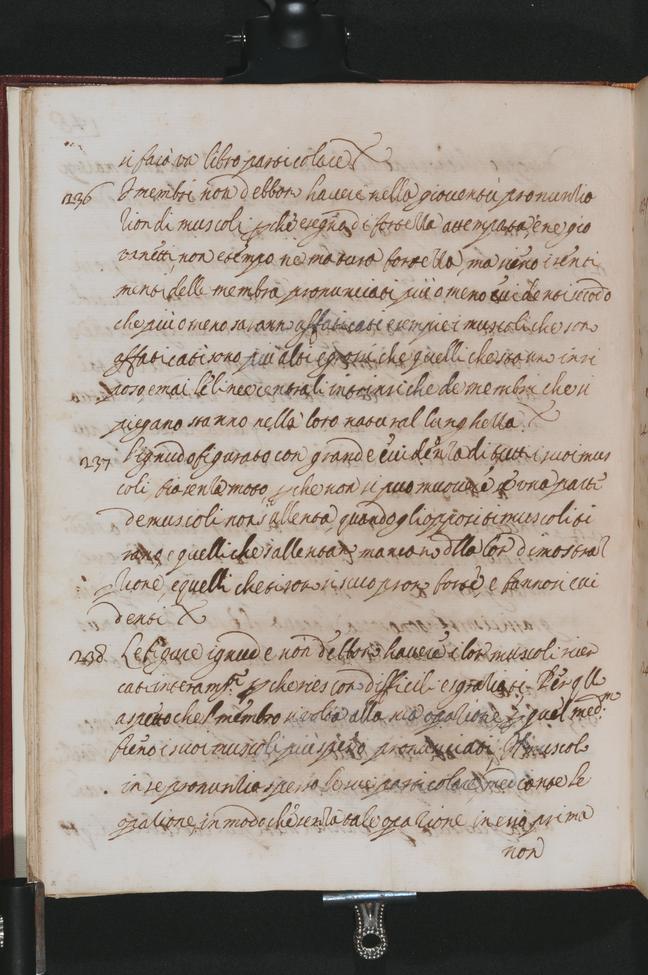 si farà un libro particolare
236 I membri non debbon havere nella gioventù pronuntia
tion di muscoli, p che è segno di fortezza attempata, e ne gio
vanetti, non è tempo, ne matura fortezza, ma sieno i senti
menti delle membra pronunciati più o meno evidenti secondo
che più o meno saranno affaticati, e sempre i muscoli che son
affaticati sono più alti e grossi che quelli che stanno in ri
poso, e mai le linee centrali intrinsiche de membri che si
piegano stanno nella loro natural lunghezza.
237 L'ignudo figurato con grande evidenza di tutti i suoi mus
coli, fia senza moto, p che non si può muovere se una parte
de muscoli non s'allenta, quando gli oppositi muscoli ti
rano, e quelli che s'allentano mancano della lor dimostra
tione, e quelli che tirano si scuopron forte e fannosi evi
denti
238 Le figure ignude non debbon havere i lor muscoli ricer
cati interam.te p che riescon difficili e sgratiati. Per q.llo
aspetto che 'l membro si volta alla sua operatione p quel med.mo
fieno i suoi muscoli più spesso pronunciati. Il muscolo
in se pronuntia spesso le sue particole mediante le
operatione, in modo che senza tale operatione in esso prima
non